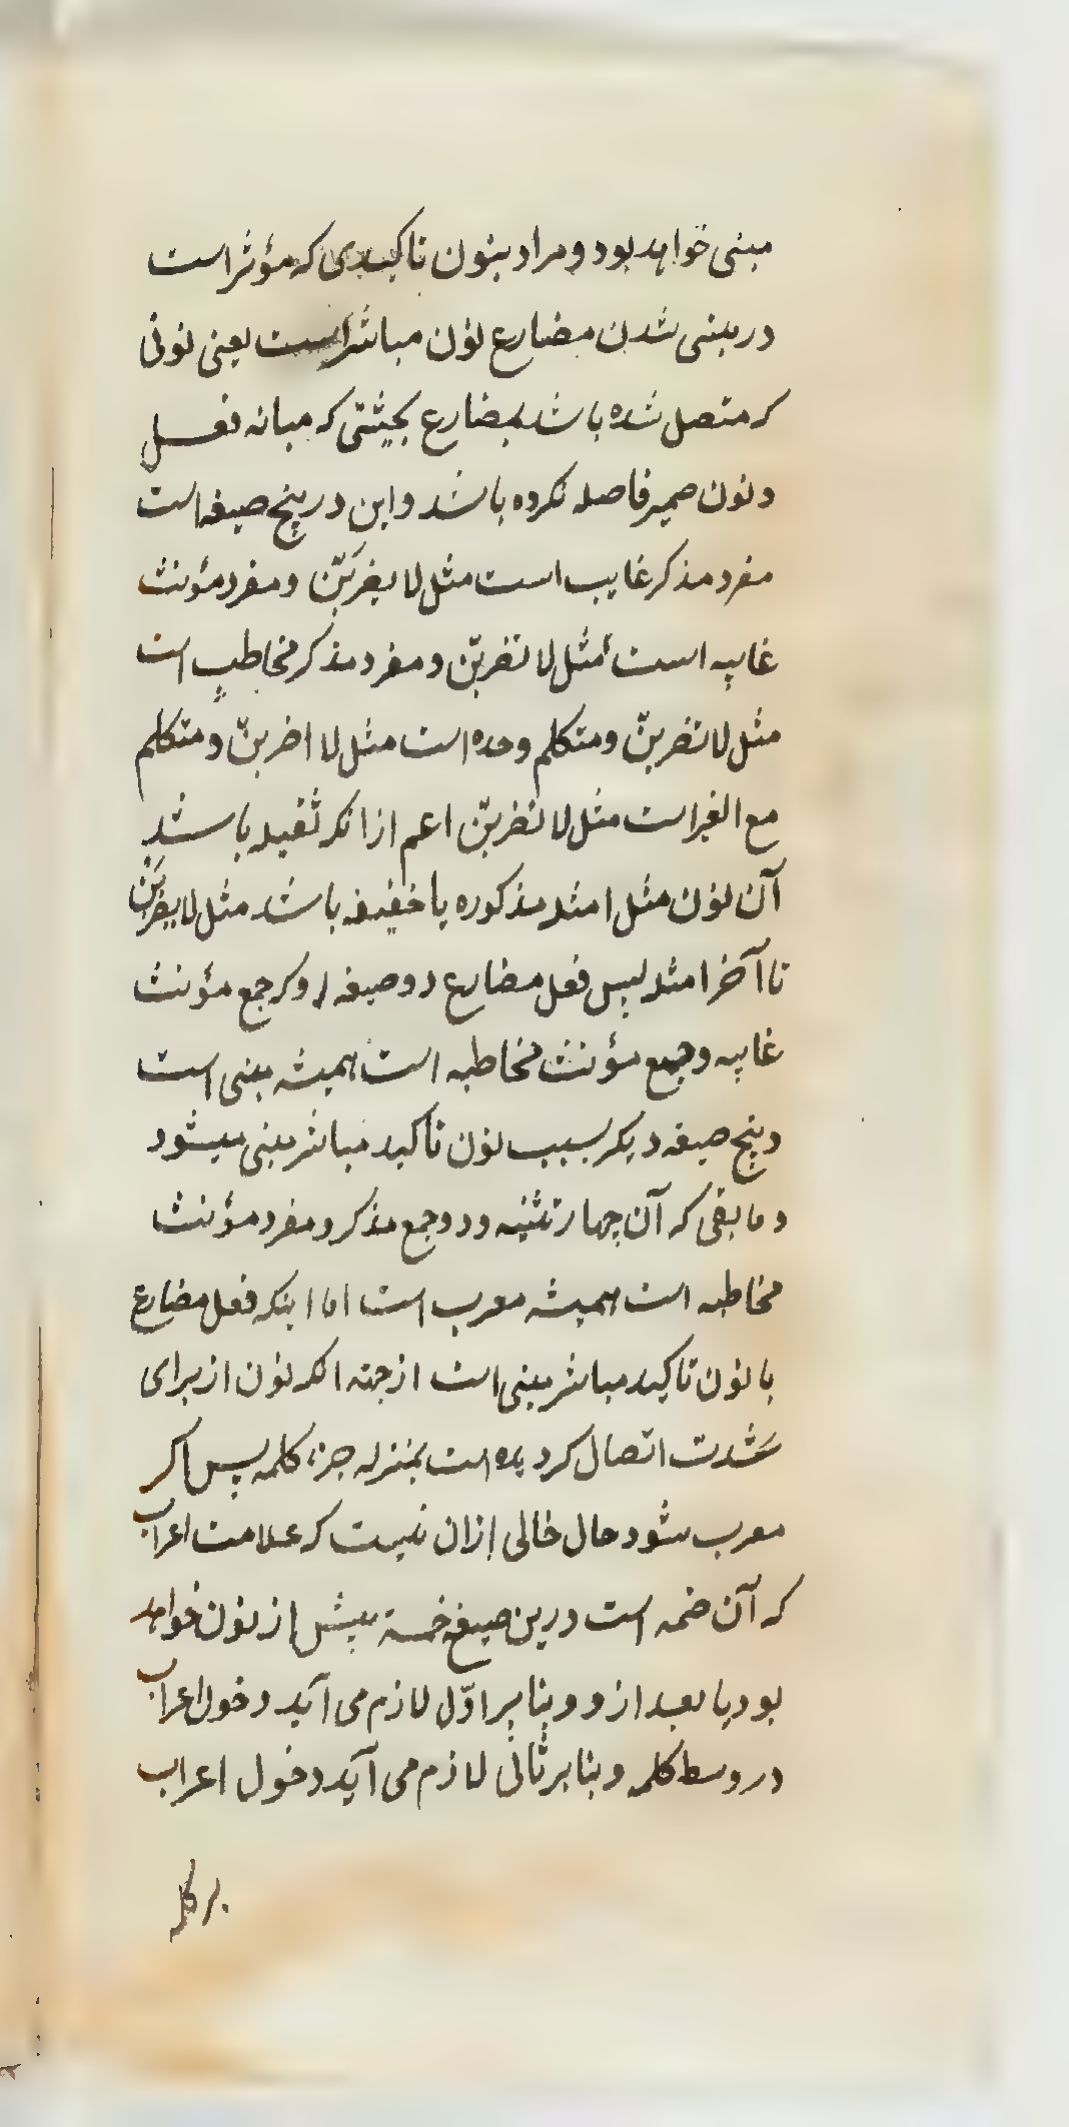 مبنی خواهد بود و مراد بنون تاکیدی که مؤثر است
در مبنی شدن مضارع نون مباشر است یعنی نونی
که متصل شده باشد بمضارع بحیثتی که میانه فعل
و نون ضمیر فاصله نکرده باشد و این در پنج صیغه است
مفرد مذکر غایب است مثل لا یضربَنّ و مفرد مؤنث
غایبه است مثل لا تضربنّ و مفرد مذکر مخاطب است
مثل لا تضربنّ و متکلم وحده است مثل لا اضربنّ و متکلم
مع الغیر است مثل لا نضربنّ اعم از انکه ثقیله باشد
آن نون مثل امثله مذکوره یا خفیفه باشد مثل لا یضربَنْ
تا آخر امثله پس فعل مضارع دو صیغه او که جمع مؤنث
غایبه و جمع مؤنث مخاطبه است همیشه مبنی است
و پنج صیغه دیگر بسبب نون تاکید مباشر مبنی میشود
و مابقی که آن چهار تثنیه و دو جمع مذکر و مفرد مؤنث
مخاطبه است همیشه معرب است اما اینکه فعل مضارع
با نون تاکید مباشر مبنی است از جهته انکه نون از برای
شدت اتصال کردیده است بمنزله جزء کلمه پس اکر
معرب شود حال خالی ازان نیست که علامت اعراب
که آن ضمه است درین صیغ خمسة پیش از نون خواهد
بود یا بعد از و و بنا بر اوّل لازم می آید دخول اعراب
در وسط کلمه و بنا بر ثانی لازم می آید دخول اعراب
بر کلمه